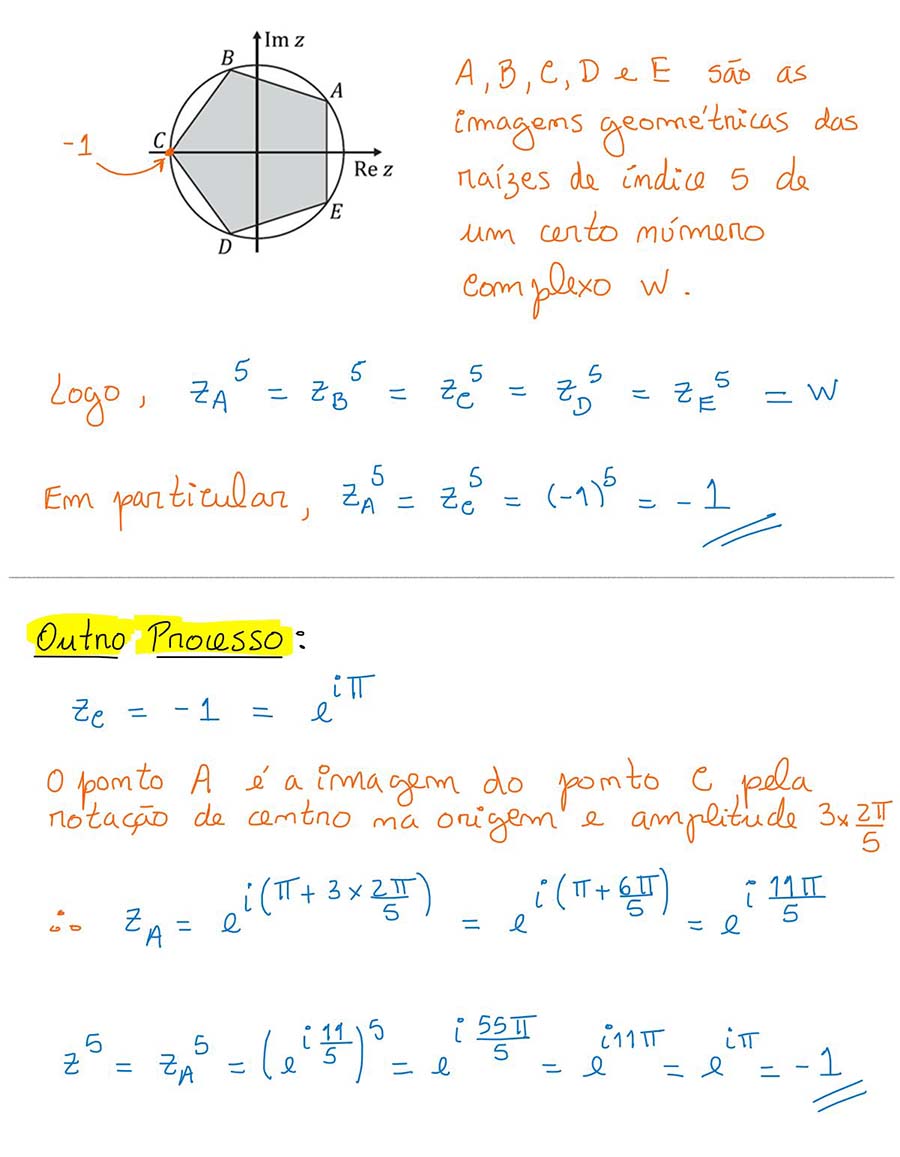 Im z
B
A
C
-1
Re z
E
D
A, B, C, D e E são as
imagens geométricas das
raízes de índice 5 de
um certo número
complexo w.
Logo, z_A^5 = z_B^5 = z_C^5 = z_D^5 = z_E^5 = w
Em particular, z_A^5 = z_C^5 = (-1)^5 = -1
Outro Processo:
z_C = -1 = e^{iπ}
O ponto A é a imagem do ponto C pela
rotação de centro na origem e amplitude 3×2π/5
∴ z_A = e^{i(π+3×2π/5)} = e^{i(π+6π/5)} = e^{i 11π/5}
z^5 = z_A^5 = (e^{i 11/5})^5 = e^{i 55π/5} = e^{i11π} = e^{iπ} = -1